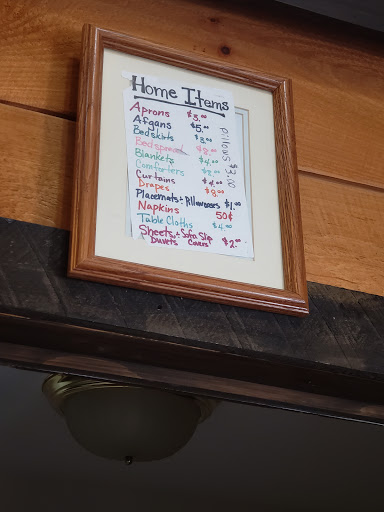 Home Items
Aprons $3.00
Afgans $5.00
Bedskirts $3.00
Bedspread
Blankets $4.00
Comforters
Curtains $4.00
Drapes $8.00
Placemats + Pillowcases $1.00
Napkins 50¢
Table Cloths $4.00
Sheets + Sofa Slip
Duvets Covers $2.00
Pillows $3.00